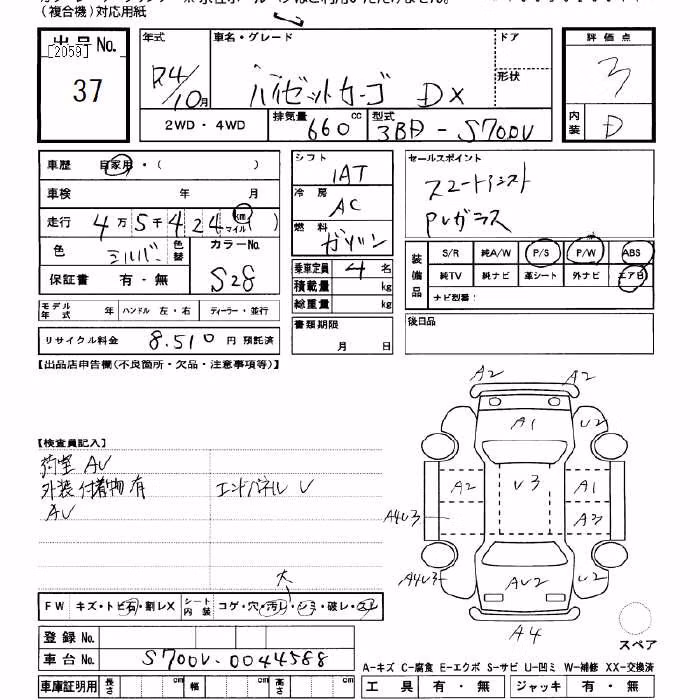 (複合機)対応用紙
出品No. [2059] 37
年式 R4/10月
車名・グレード ハイゼットカーゴ DX
ドア
形状
評価点 3
内装 D
2WD・4WD
排気量 660 cc
型式 3BD-S700V
車歴 自家用・( )
車検 年 月
走行 4万5千424 km マイル ( )
色 シルバー 色替
カラーNo. S28
保証書 有・無
モデル年式 年 ハンドル 左・右 ディーラー・並行
リサイクル料金 8,510 円 預託済
シフト IAT
冷房 AC
燃料 ガソリン
乗車定員 4 名
積載量 kg
総重量 kg
書類期限 月 日
セールスポイント
スマートアシスト
Pvガラス
装備品
S/R 純A/W P/S P/W ABS
純TV 純ナビ 革シート 外ナビ エアB
ナビ型番:
後日品
【出品店申告欄(不良箇所・欠品・注意事項等)】
【検査員記入】
荷室 AU
外装 付着物有 エンドパネル U
AU
A2 A2
A1 U2
A2 U3 A1
A4U3 A2
A4U3 AU2 U2
A4
スペア
大
FW キズ・トビ石・割レX シート内装 コゲ・穴・汚レ・シミ・破レ・スレ
登録No.
車台No. S700V-0044588
A-キズ C-腐食 E-エクボ S-サビ U-凹ミ W-補修 XX-交換済
車庫証明用 長さ cm 幅 cm 高さ cm 工具 有・無 ジャッキ 有・無